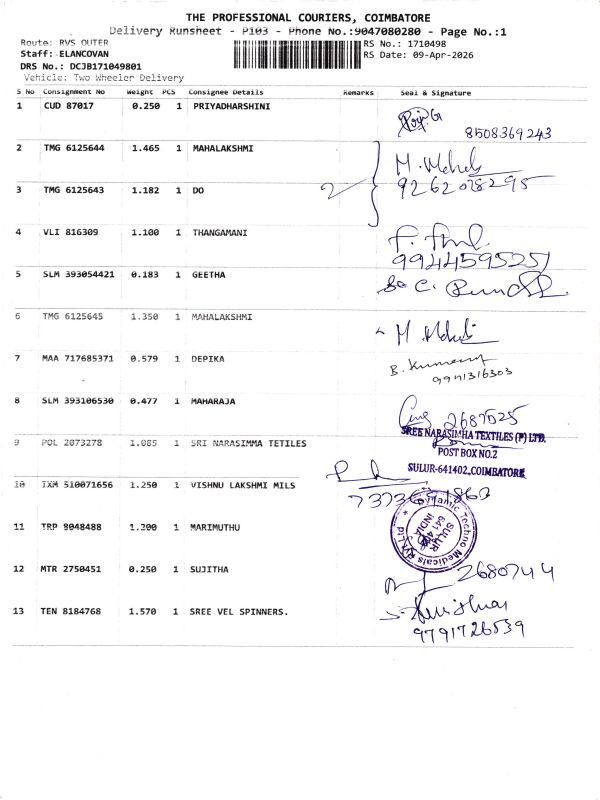 THE PROFESSIONAL COURIERS, COIMBATORE
Delivery Runsheet - P103 - Phone No.:9047080280 - Page No.:1
Route: RVS OUTER
Staff: ELANCOVAN
DRS No.: DCJB171049801
Vehicle: Two Wheeler Delivery
RS No.: 1710498
RS Date: 09-Apr-2026
S No Consignment No Weight PCS Consignee Details Remarks Seal & Signature
1 CUD 87017 0.250 1 PRIYADHARSHINI
8508369243
2 TMG 6125644 1.465 1 MAHALAKSHMI
9262078295
3 TMG 6125643 1.182 1 DO
4 VLI 816309 1.100 1 THANGAMANI
9944595251
5 SLM 393054421 0.183 1 GEETHA
6 TMG 6125645 1.350 1 MAHALAKSHMI
7 MAA 717685371 0.579 1 DEPIKA
9941316303
8 SLM 393106530 0.477 1 MAHARAJA
2687525
SREE NARASIMHA TEXTILES (P) LTD.
9 POL 2073278 1.085 1 SRI NARASIMMA TETILES
POST BOX NO.2
SULUR-641402, COIMBATORE
10 IXM 510071656 1.250 1 VISHNU LAKSHMI MILS
11 TRP 8048488 1.200 1 MARIMUTHU
Dynamic Techno Medicals Pvt. Ltd.
SULUR
INDIA
12 MTR 2750451 0.250 1 SUJITHA
2680744
13 TEN 8184768 1.570 1 SREE VEL SPINNERS.
9791726539